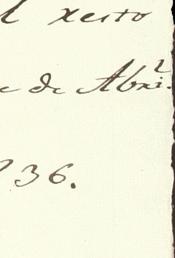 l resto
e de Abril.
36.